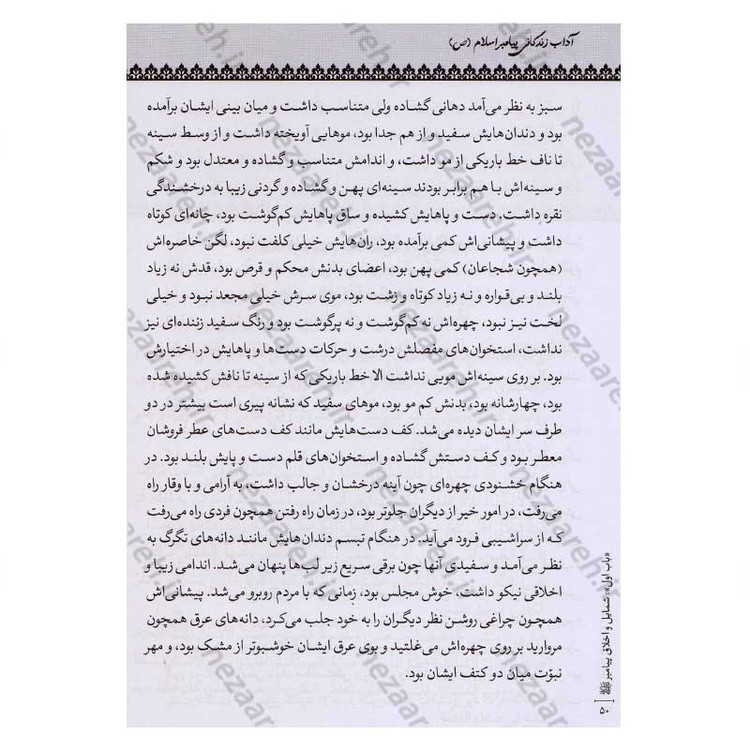 آداب زندگانی پیامبر اسلام (ص)
سبز به نظر می‌آمد دهانی گشاده ولی متناسب داشت و میان بینی ایشان برآمده
بود و دندان‌هایش سفید و از هم جدا بود، موهایی آویخته داشت و از وسط سینه
تا ناف خط باریکی از مو داشت، و اندامش متناسب و گشاده و معتدل بود و شکم
و سینه‌اش با هم برابر بودند سینه‌ای پهن و گشاده و گردنی زیبا به درخشندگی
نقره داشت. دست و پاهایش کشیده و ساق پاهایش کم‌گوشت بود، چانه‌ای کوتاه
داشت و پیشانی‌اش کمی برآمده بود، ران‌هایش خیلی کلفت نبود، لگن خاصره‌اش
(همچون شجاعان) کمی پهن بود، اعضای بدنش محکم و قرص بود، قدش نه زیاد
بلند و بی‌قواره و نه زیاد کوتاه و زشت بود، موی سرش خیلی مجعد نبود و خیلی
لخت نیز نبود، چهره‌اش نه کم‌گوشت و نه پرگوشت بود و رنگ سفید زننده‌ای نیز
نداشت، استخوان‌های مفصلش درشت و حرکات دست‌ها و پاهایش در اختیارش
بود. بر روی سینه‌اش مویی نداشت الا خط باریکی که از سینه تا نافش کشیده شده
بود، چهارشانه بود، بدنش کم مو بود، موهای سفید که نشانه پیری است بیشتر در دو
طرف سر ایشان دیده می‌شد. کف دست‌هایش مانند کف دست‌های عطر فروشان
معطر بود و کف دستش گشاده و استخوان‌های قلم دست و پایش بلند بود. در
هنگام خشنودی چهره‌ای چون آینه درخشان و جالب داشت، به آرامی و با وقار راه
می‌رفت، در امور خیر از دیگران جلوتر بود، در زمان راه رفتن همچون فردی راه می‌رفت
که از سراشیبی فرود می‌آید. در هنگام تبسم دندان‌هایش مانند دانه‌های تگرگ به
نظر می‌آمد و سفیدی آنها چون برقی سریع زیر لب‌ها پنهان می‌شد. اندامی زیبا و
اخلاقی نیکو داشت، خوش مجلس بود، زمانی که با مردم روبرو می‌شد. پیشانی‌اش
همچون چراغی روشن نظر دیگران را به خود جلب می‌کرد، دانه‌های عرق همچون
مروارید بر روی چهره‌اش می‌غلتید و بوی عرق ایشان خوشبوتر از مشک بود، و مهر
نبوّت میان دو کتف ایشان بود.
«باب اول»: شمایل و اخلاق پیامبر ﷺ
۵۰
nezaareh.ir